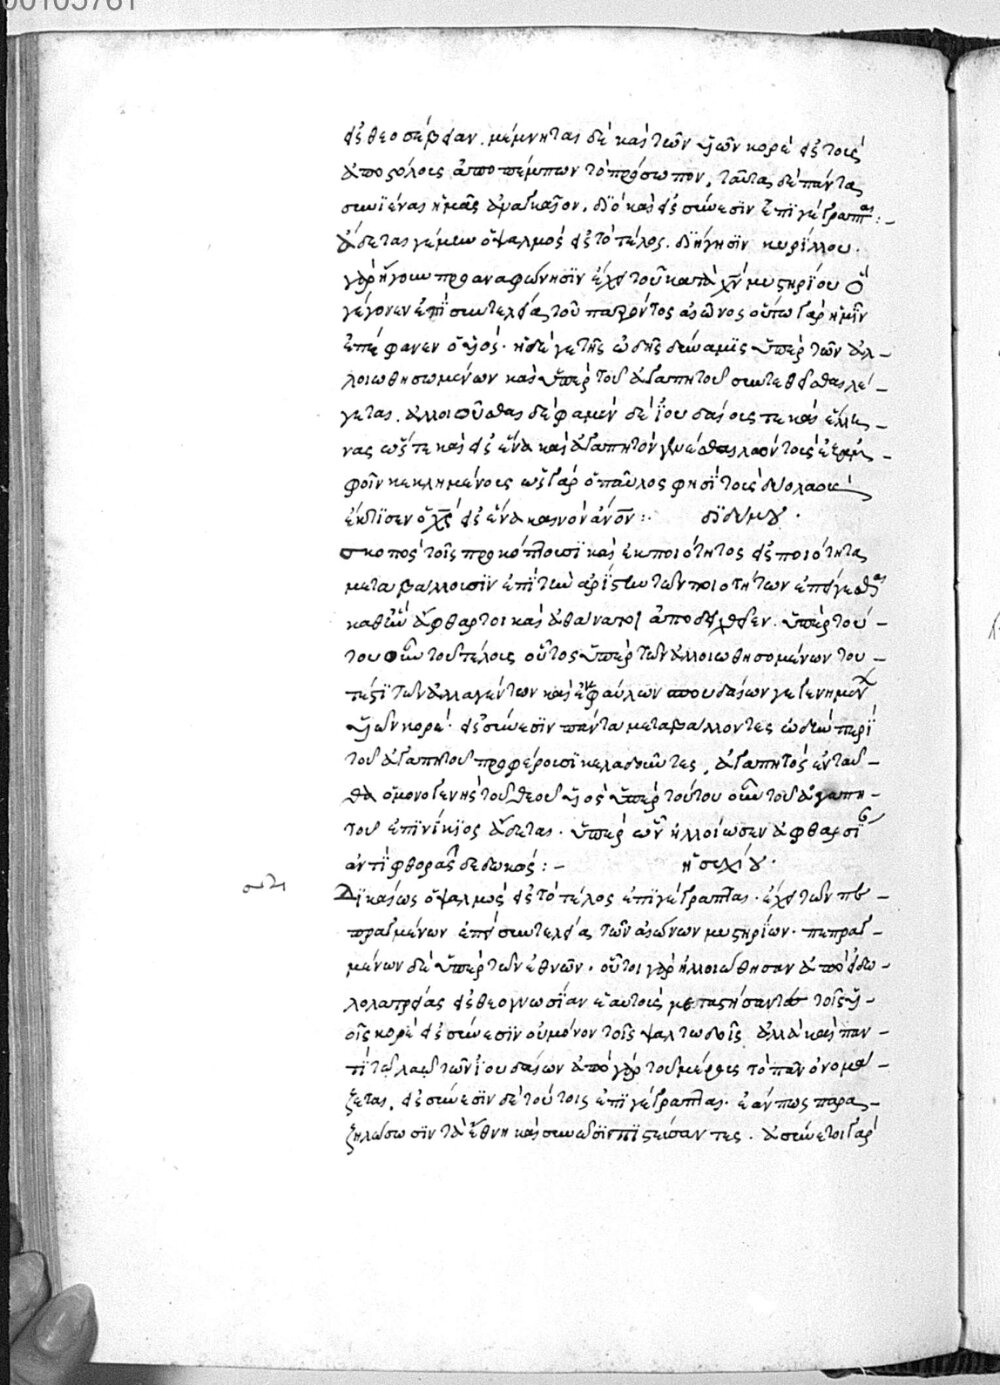 00105761
εἰς θεοσέβειαν. μέμνηται δὲ καὶ τῶν υἱῶν κορὲ εἰς τοὺς
ἀποστόλους ἀποπέμπων τὸ πρόσωπον. ταῦτα δὲ πάντα
συνϊέναι ἡμᾶς ἀναγκαῖον. διὸ καὶ εἰς σύνεσιν ἐπιγέγραπται:-
ᾄδεται γέμεων ὁ ψαλμὸς εἰς τὸ τέλος. διήγησιν κυρίλλου.
γὰρ ἤγουν προαναφώνησιν ἔχει τοῦ κατὰ χν μυστηρίου ὃ
γέγονεν ἐπὶ συντελείας τοῦ παρόντος αἰῶνος οὕτω γὰρ ἡμῖν
ἐπέφανεν ὁ υἱός. ἡ δέ γε τῆς ὠδῆς δύναμις ὑπὲρ τῶν ἀλ-
λοιωθησομένων καὶ ὑπὲρ τοῦ ἀγαπητοῦ συντεθεῖσθαι λέ-
γεται. ἀλλοιοῦσθαι δέ φαμεν δὲ ἰουδαίους τε καὶ ἕλλη-
νας ὥστε καὶ εἰς ἕνα καὶ ἀγαπητὸν γενέσθαι λαὸν τοὺς
κεκλημένους ὡς γὰρ ὁ παῦλος φησὶ τοὺς δύο λαοὺς
ἔκτισεν ὁ χς εἰς ἕνα καινὸν ἀνον:. διδύμου.
σκοπὸς τοῖς προκόπτουσι καὶ ἐκ ποιότητος εἰς ποιότητα
μεταβάλλουσιν ἐπὶ τὴν ἀρίστην τῶν ποιοτήτων ἐπείγεσθαι
καθ' ἣν ἄφθαρτοι καὶ ἀθάνατοι ἀποδειχθεῖεν. ὑπὲρ τού-
του οὖν τοῦ τέλους οὗτος ὑπὲρ τῶν ἀλλοιωθησομένων του-
τέστι τῶν ἀλλαγέντων καὶ ἐκ φαύλων σπουδαίων γεγενημένων
υἱῶν κορέ. εἰς σύνεσιν πάντα μεταβάλλοντες ὠδὴν περὶ
τοῦ ἀγαπητοῦ προφέρουσι κελαδοῦντες. ἀγαπητὸς ἐνταῦ-
θα ὁ μονογενὴς τοῦ θεοῦ υἱὸς ὑπὲρ τούτου οὖν τοῦ ἀγαπη-
τοῦ ἐπινίκιος ᾄδεται. ὑπὲρ ὧν ἠλλοίωσεν ἀφθαρσίαν
ἀντὶ φθορᾶς δεδωκώς:- ἡσυχίου.
Δικαίως ὁ ψαλμὸς εἰς τὸ τέλος ἐπιγέγραπται. ἔχει τῶν πε-
πραγμένων ἐπὶ συντελείας τῶν αἰώνων μυστηρίων. πεπραγ-
μένων δὲ ὑπὲρ τῶν ἐθνῶν. οὗτοι γὰρ ἠλλοιώθησαν ἀπὸ εἰδω-
λολατρείας εἰς θεογνωσίαν ἑαυτοὺς μεταστήσαντες τοῖς υἱ-
οῖς κορὲ εἰς σύνεσιν οὐ μόνον τοῖς ψαλτωδοῖς ἀλλὰ καὶ παν-
τὶ τῷ λαῷ τῶν ἰουδαίων ἀπὸ γὰρ τοῦ μέρους τὸ πᾶν ὀνομά-
ζεται. εἰς σύνεσιν δὲ τούτοις ἐπιγέγραπται. ἐάν πως παρα-
ζηλώσωσιν τὰ ἔθνη καὶ συνῶσιν πιστεύσαντες. ἀσύνετοι γὰρ